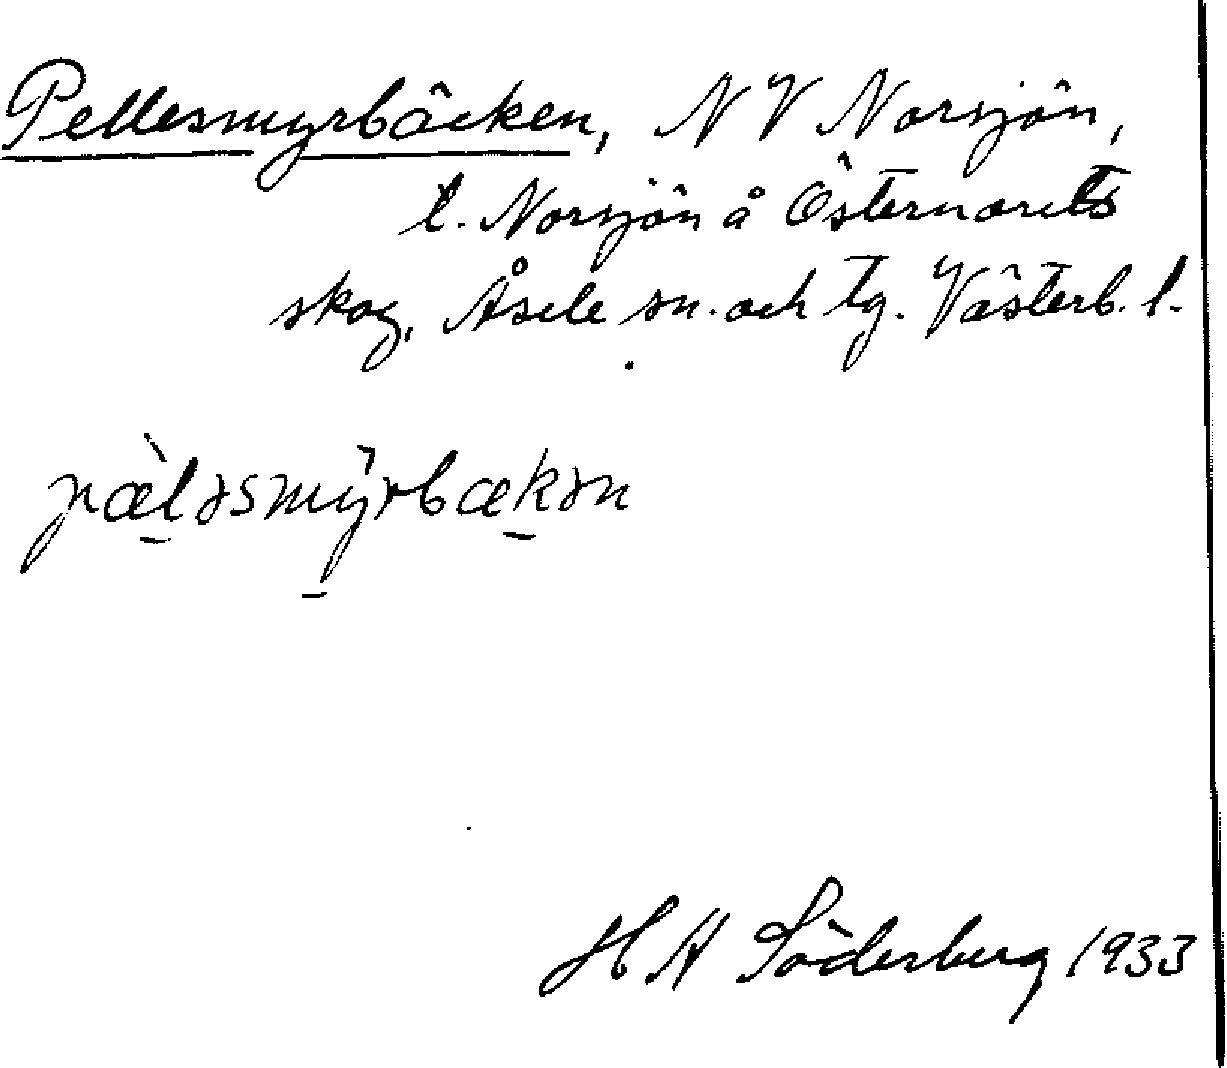 Pellesmyrbäcken, N V Norsjön,
t. Norsjön å Östernorets
skog, Åsele sn. och tg. Västerb. l.
pæ̀ləsmỳrbækən
H A Söderberg 1933